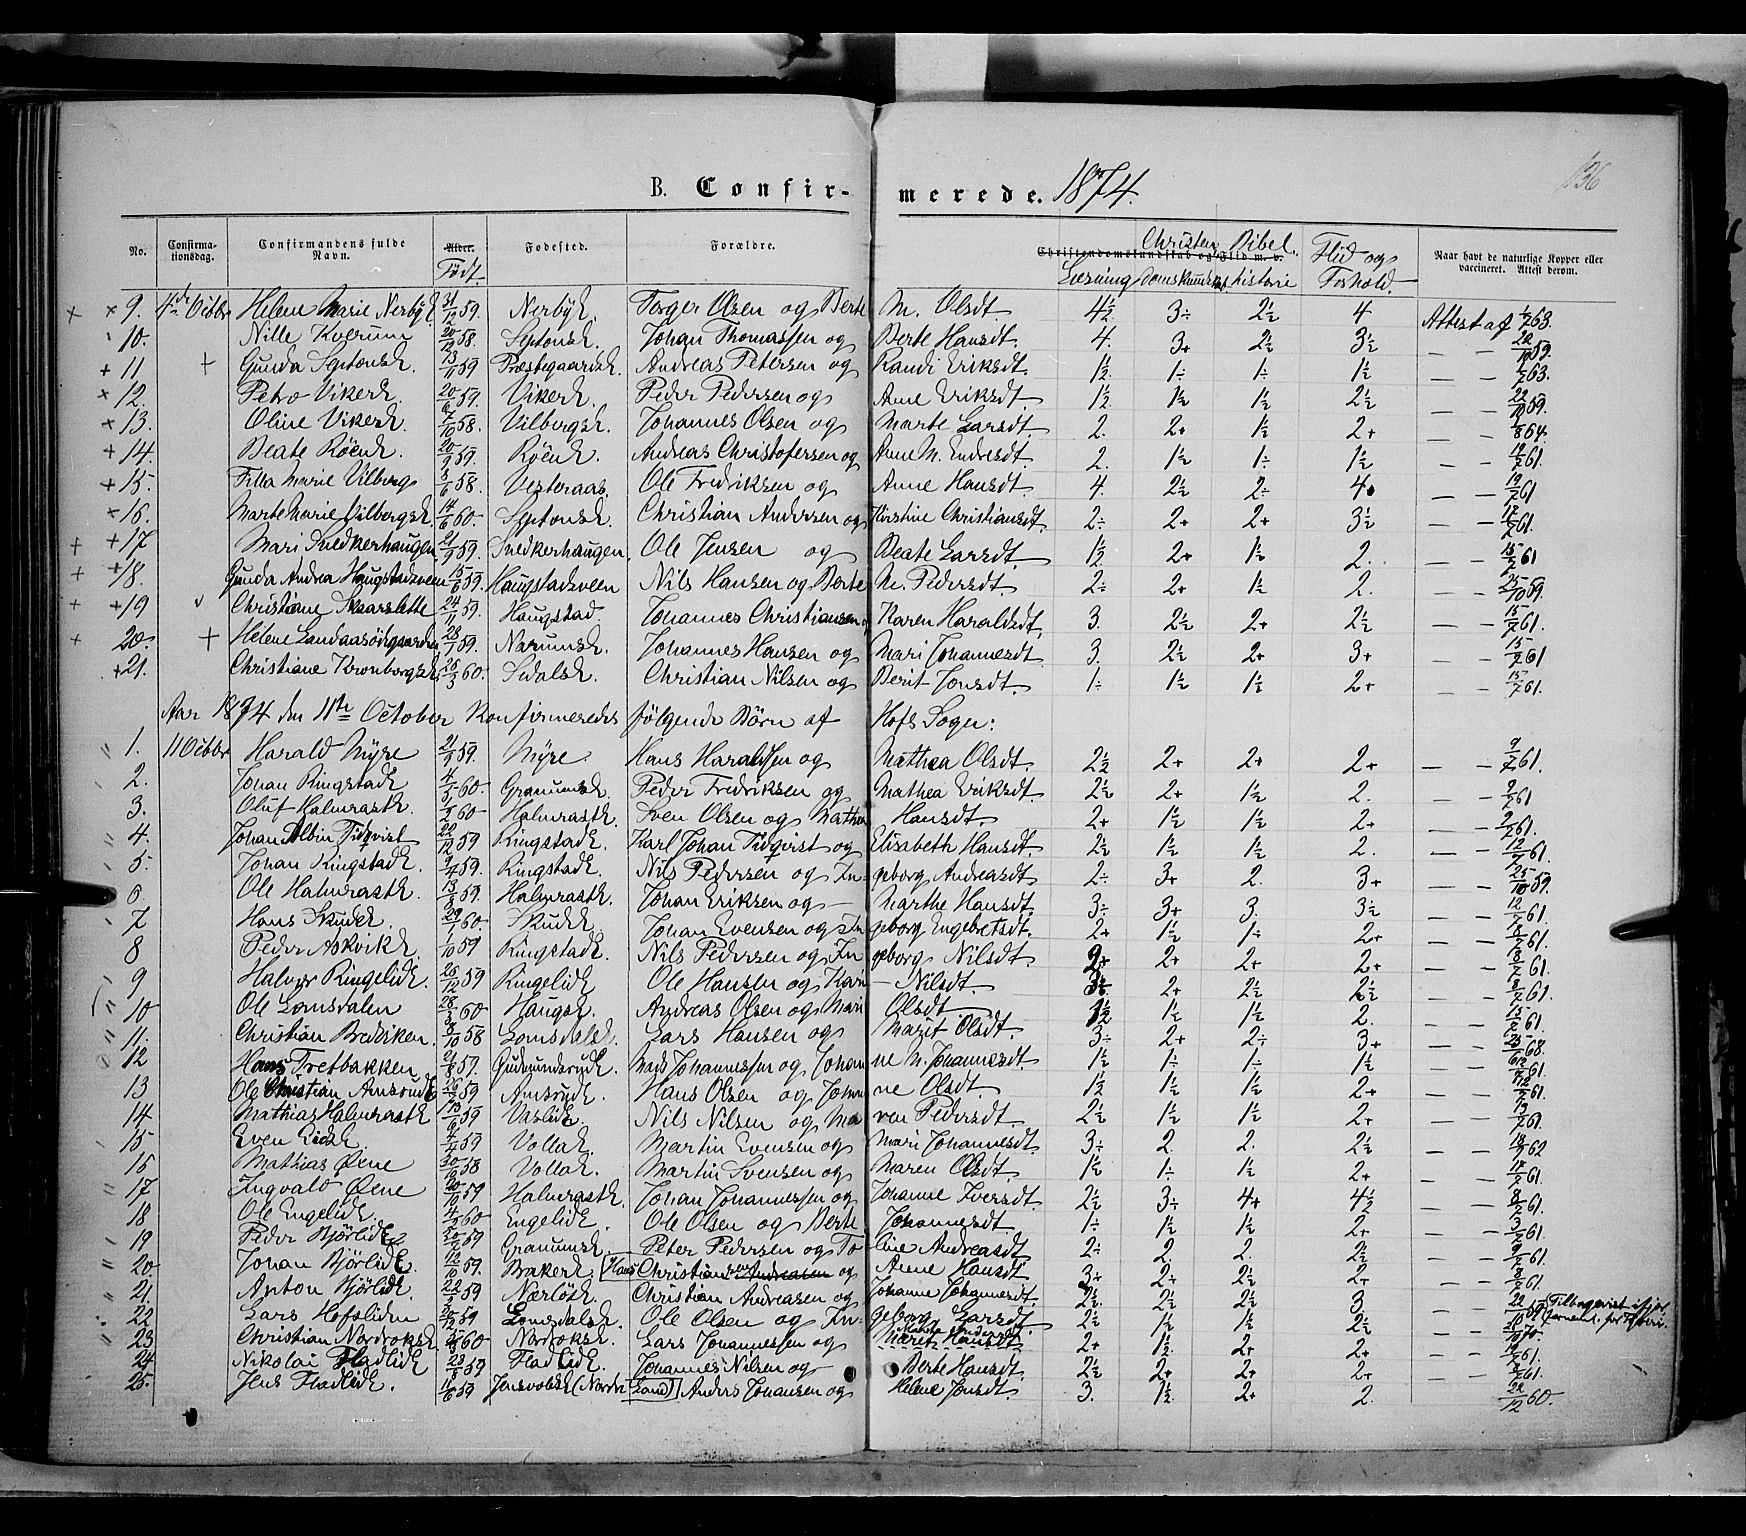 136
B. Confirmerede. 1874.
No. Confirmationsdag. Confirmandens fulde Navn. Alder. Født. Fødested. Forældre. Christendomskundskab og Flid m. v. Læsning Christendomskundskab Bibelhistorie Flid og Forhold. Naar havt de naturlige Kopper eller vaccineret. Attest derom.
9. 4de Octbr Helene Marie Nerbyk 31/12 59. Nerbyk. Torger Olsen og Berte M. Olsdt 4½ 3÷ 2½ 4. Attest af 63.
10. Nille Kverum 20/12 58. Septonsk. Johan Thomassen og Berte Hansdt. 4. 3+ 2½ 3½ — — 59.
11 Gunda Septonsk. 59 Præstegaardsk. Andreas Petersen og Randi Eriksdt. 1½ 1÷ 1÷ 1½ — — 63.
12. Petra Vikerk. 20/6 59. Vikerk. Peder Pedersen og Anne Eriksdt. 1½ 1½ 1½ 2½ — — 59.
13. Oline Vikerk. 7/10 58. Vilbergsk. Johannes Olsen og Marte Larsdt. 2. 2+ 1½ 2+ — — 64.
14. Beate Røenk. 20/9 59. Røenk. Andreas Christofersen og Anne M. Endresdt. 2. 1½ 1÷ 1½ — — 61.
15. Marie Vilbergs 8/6 58. Vesteraas. Ole Fredriksen og Anne Hansdt. 4. 2½ 2÷ 4. — — 61
16. Marte Marie Vilbergsk. 14/6 60. Septonsk. Christian Andersen og Kirstine Christiansdt. 2÷ 2+ 2+ 3½ — — 61.
17 Mari Snedkerhaugen 59. Snedkerhaugen Ole Jensen og Beate Larsdt. 1½ 2+ 1½ 2. — — 61
18. Gunda Andrea Haugstadsveen 15/6 59. Haugstadsveen Nils Hansen og Berte M. Pedersdt. 2÷ 2+ 1½ 2. — — 59.
19 Christiane Skarslette 24/11 59. Haugstad. Johannes Christiansen og Karen Haraldsdt. 3. 2½ 2+ 2½ — — 61.
20. Helene Landaasødegaarden 59. Narumsk. Johannes Hansen og Mari Johannesdt. 3. 2½ 2+ 3+ — — 61
21. Christiane Kronborgsk. 60. Sedalsk. Christian Nilsen og Berit Jonsdt. 1÷ 1½ 1½ 2+ — — 61.
Aar 1874 den 11te October Konfirmeredes følgende Børn af Hofs Sogn:
1. 11 Octbr Harald Myre 59. Myre. Hans Haraldsen og Mathea Olsdt. 2½ 2+ 2+ 2+ — — 61.
2. Johan Ringstadk 60. Granumsk. Peder Fredriksen og Mathea Eriksdt. 2½ 2+ 1½ 2. — — 61
3. Oluf Halmrastk. 60 Halmrastk. Sven Olsen og Mathea Hansdt. 2+ 1½ 1½ 2+ — — 61.
4. Johan Albin Tidqvist 22/12 59 Ringstadk. Karl Johan Tidqvist og Elisabeth Hansdt. 2½ 1½ 1½ 2. — — 61.
5. Johan Ringstadk. 9/4 59. Ringstadk. Nils Pedersen og Ingeborg Andreasdt. 2÷ 3+ 2. 3+ — — 25/10 59.
6. Ole Halmrastk. 13/8 59. Halmrastk. Johan Eriksen og — Marthe Hansdt. 3÷ 3+ 3. 3½ — — 61.
7 Hans Skudek 60. Skudek Johan Evensen og Ingeborg Engebretsdt. 2+ 1½ 1÷ 2+ — — 61.
8 Peder Askvikk. 59 Ringstadk. Nils Pedersen og Ingeborg Nilsdt. 2+ 2+ 2+ 2+ — — 61.
9 Halvor Ringelidk. 59 Ringelidk Ole Hansen og Kari — Nilsdt. 2+ 2½ 2½ — — 61.
10 Ole Lomsdalen 60. Haugsk. Andreas Olsen og Mari Olsdt. 1½ 1½ 2. — — 61.
11. Christian Bredviken. 58 Lomsdalsk. Lars Hansen og Marit Olsdt. 3÷ 2+ 2÷ 3+ — — 68.
12 Hans Tretbakken 59. Gudmundsrudk. Mads Johannessen og Johanne M. Johannesdt. 1½ 1÷ 1÷ 1½ — — 61.
13 Ole Christian Amsrudk 59 Amsrudk. Hans Olsen og Johanne Olsdt. 1½ 1½ 1½ 2+ — — 61.
14. Mathias Halmrastk 59 Vaslidk. Nils Nilsen og Maren Pedersdt. 2½ 1½ 1½ 2+ — — 61.
15 Even Eidsk. 59 Vollak. Martin Evensen og Mari Johannesdt. 3÷ 2. 2. 2½ — — 62
16 Mathias Øene 58 Vollak. Martin Svensen og Maren Olsdt. 1½ 1÷ 1½ 2+ — — 61.
17 Ingvald Øene 59 Halmrastk. Johan Johannessen og Johanne Iversdt. 2½ 3÷ 4+ 4½ — — 61.
18 Ole Engelidk. 60 Engelidk. Ole Olsen og Berte Johannesdt. 1÷ 1½ 1½ 2+ — — 61.
19 Peder Bjørlidk 59 Granumsk. Peter Pedersen og Toline Andreasdt 2÷ 2 2. 2½ — — 61.
20 Johan Bjørlidk. 59. Brakerk. Hans Christiansen Andreasen og Anne Hansdt 3+ 2+ 2½ 2+ — — 61.
21. Anton Bjørlidk. 59 Nærløsk. Christian Andreasen og Johanne Johannesdt. 2½ 2½ 2½ 3. — —
22 Lars Hofslien 59 Lomsdalsk. Ole Olsen og Ingeborg Larsdt. 2½ 1½ 1½ 2½ — —
23 Christian Nordraksk. 60 Nordraksk. Lars Johannessen og Marit Hansdt 2+ 1½ 2+ 2+ — — 61.
24. Nikolai Fladlidk 59 Fladlidk. Johannes Nilsen og — Berte Hansdt. 2½ 2+ 2+ 2+ — — 61.
25. Jens Fladlidk. 59 Jensvolsk (Nordre Land) Anders Johansen og Helene Jonsdt 3. 1½ 2+ 2. — — 22/12 60.